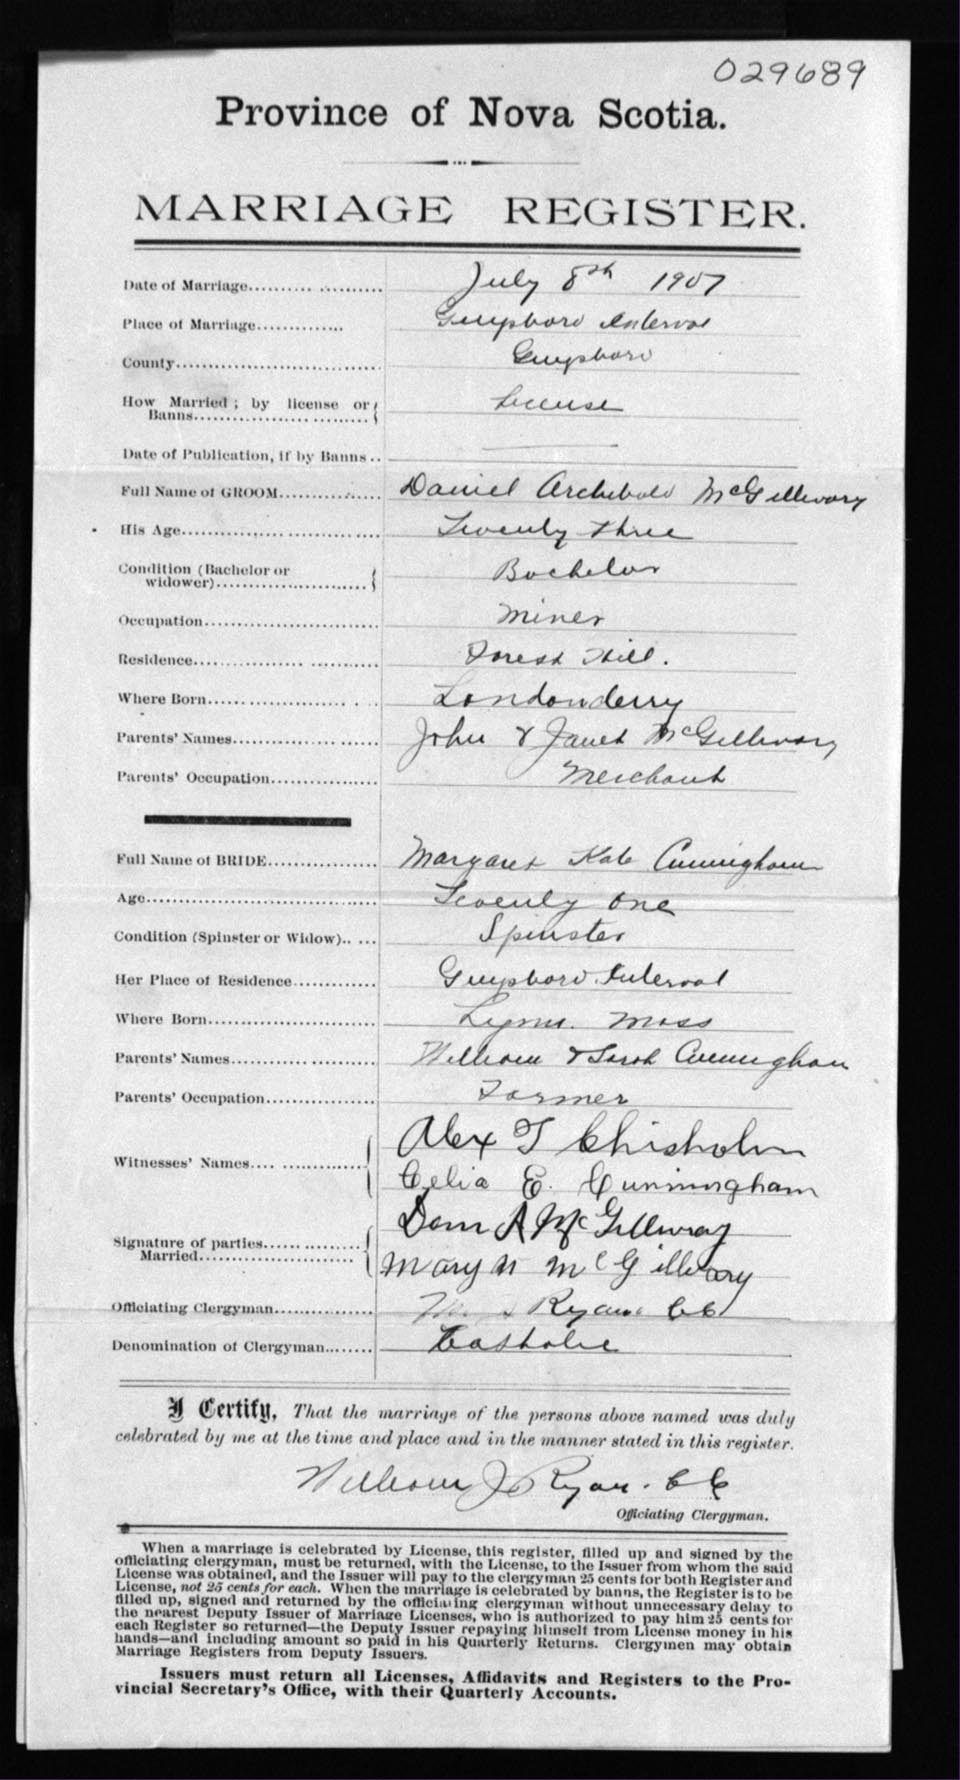 029689
Province of Nova Scotia.
MARRIAGE REGISTER.
Date of Marriage.......... July 8th 1907
Place of Marriage.............. Guysboro Interval
County................................. Guysboro
How Married; by license or
Banns............................. License
Date of Publication, if by Banns..
Full Name of GROOM............... Daniel Archibald McGillivary
His Age................................. Twenty three
Condition (Bachelor or
widower)......................... Bachelor
Occupation............................. Miner
Residence............................. Forest Hill.
Where Born............................ Londonderry
Parents' Names....................... John & Janet McGillivary
Parents' Occupation................ Merchant
Full Name of BRIDE................ Margaret Kate Cunningham
Age..................................... Twenty one
Condition (Spinster or Widow)..... Spinster
Her Place of Residence............. Guysboro Interval
Where Born......................... Lynn. Mass
Parents' Names..................... William & Sarah Cunningham
Parents' Occupation................ Farmer
Alex T Chisholm
Witnesses' Names..................
Celia E. Cunningham
Dan A McGillivray
Signature of parties...............
Married....................... McGillivary
Officiating Clergyman............... Ryan CC
Denomination of Clergyman........ Catholic
I Certify, That the marriage of the persons above named was duly
celebrated by me at the time and place and in the manner stated in this register.
William J Ryan. CC
Officiating Clergyman.
When a marriage is celebrated by License, this register, filled up and signed by the
officiating clergyman, must be returned, with the License, to the Issuer from whom the said
License was obtained, and the Issuer will pay to the clergyman 25 cents for both Register and
License, not 25 cents for each. When the marriage is celebrated by banns, the Register is to be
filled up, signed and returned by the officiating clergyman without unnecessary delay to
the nearest Deputy Issuer of Marriage Licenses, who is authorized to pay him 25 cents for
each Register so returned—the Deputy Issuer repaying himself from License money in his
hands—and including amount so paid in his Quarterly Returns. Clergymen may obtain
Marriage Registers from Deputy Issuers.
Issuers must return all Licenses, Affidavits and Registers to the Pro-
vincial Secretary's Office, with their Quarterly Accounts.